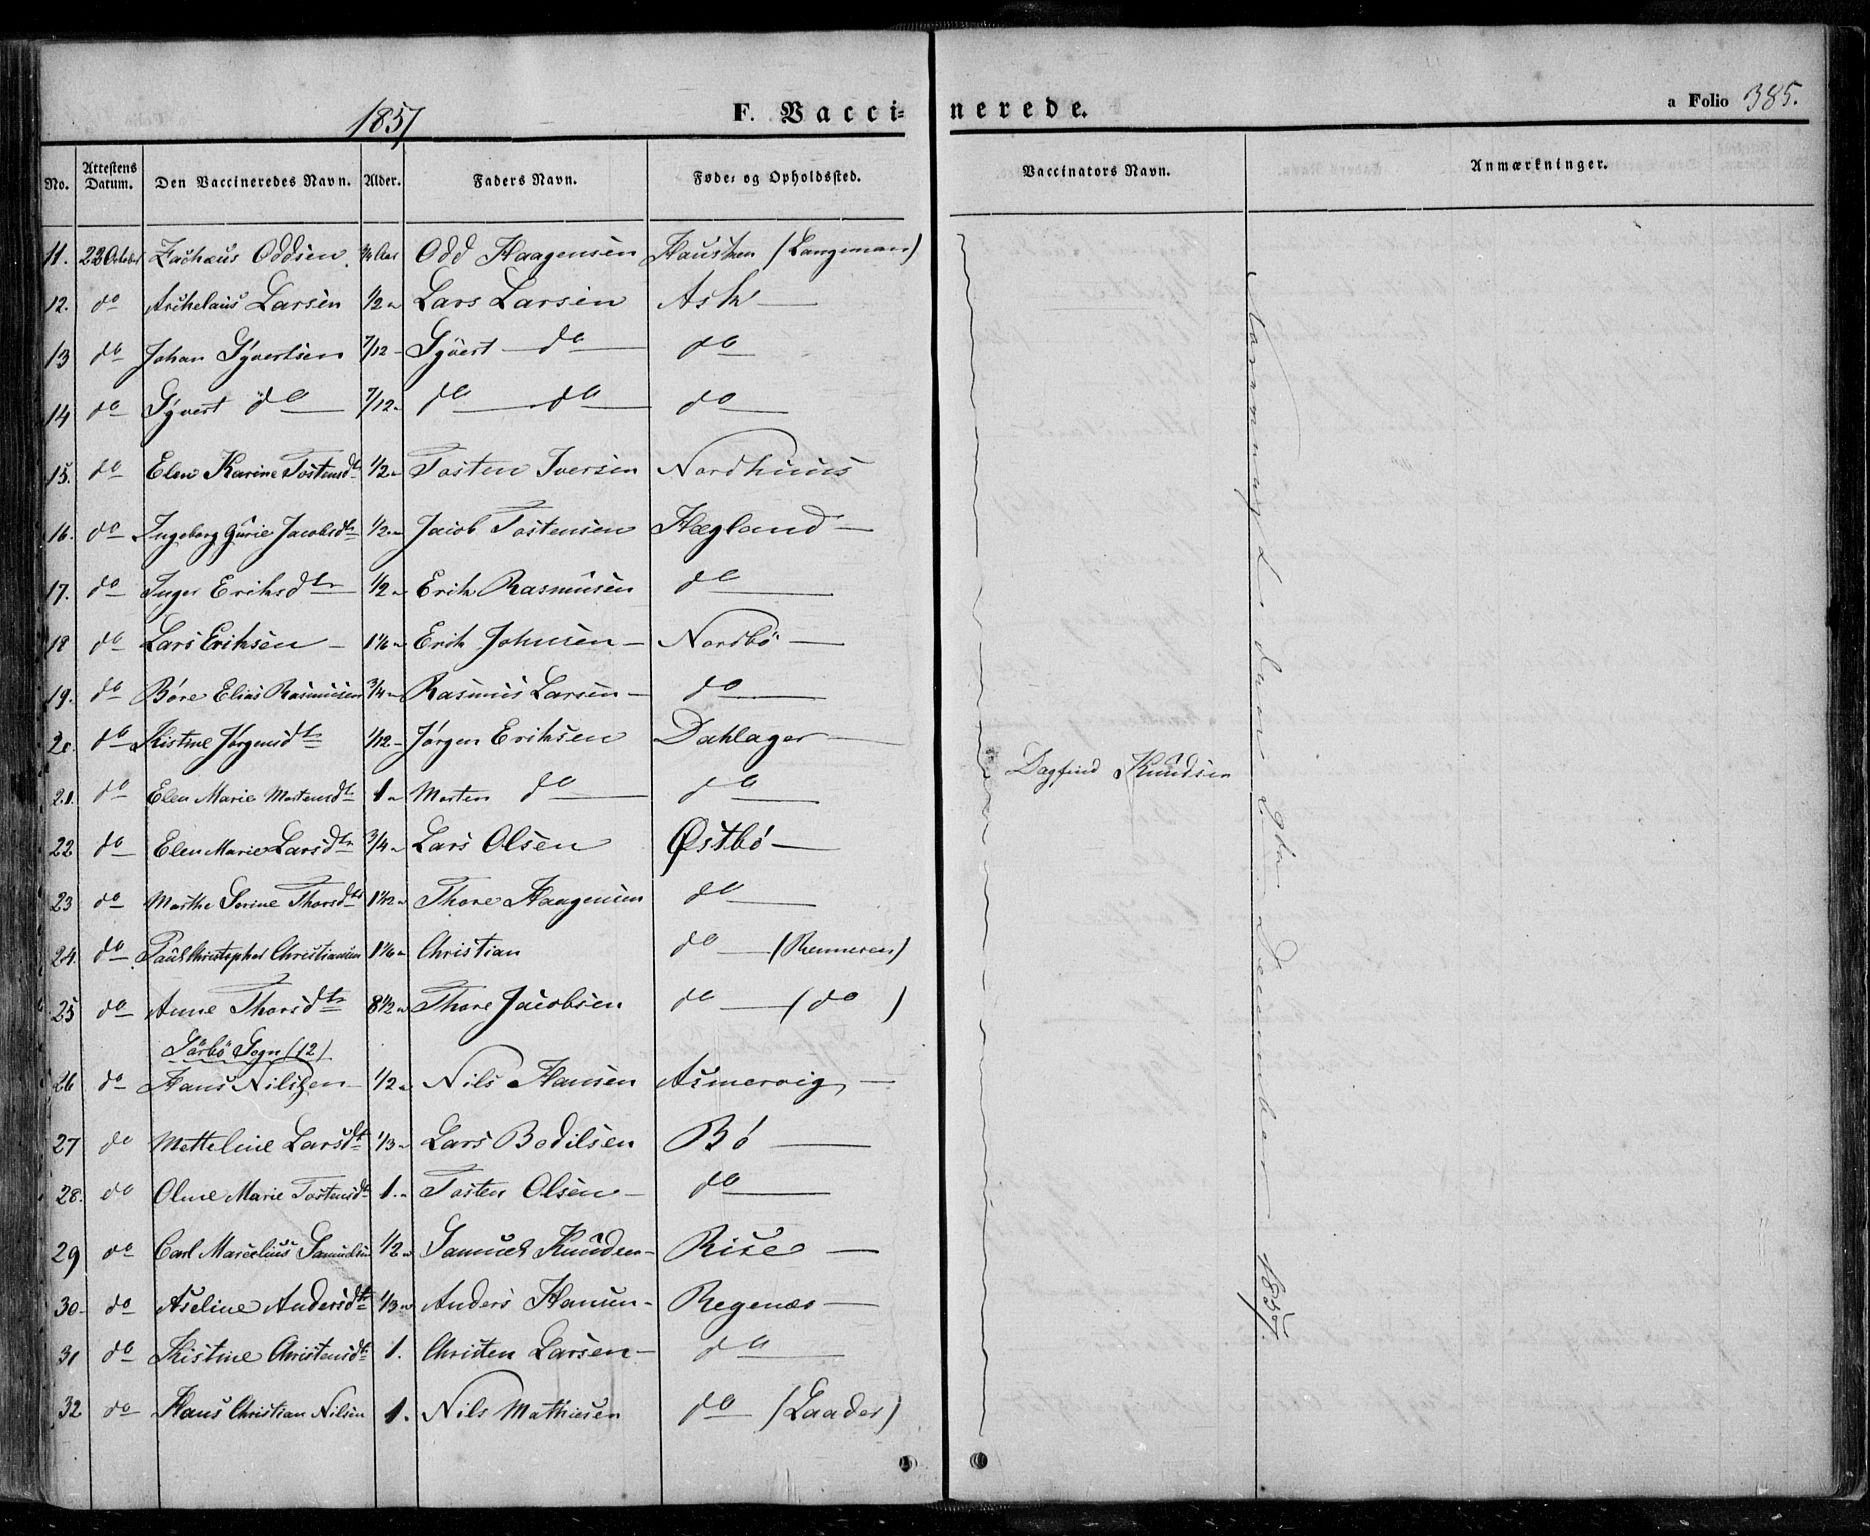 1857 F. Vaccinerede. a Folio 385.
No. Attestens Datum. Den Vaccineredes Navn. Alder. Faders Navn. Føde- og Opholdssted. Vaccinators Navn. Anmærkninger.
11. 22 October Zachæus Oddsen 3/4 Aar Odd Haagensen Hausken (Langeman)
12. do Archelaus Larsen 1/2 " Lars Larsen Ask
13 do Johan Syvertsen 7/12 - Syvert do do
14 do Syvert do 7/12 " do do do
15. do Elen Karine Tostensdtr 1/2 " Tosten Iversen Nordhuus
16. do Ingeborg Gurie Jacobsdtr 1/2 " Jacob Tostensen Hægland
17. do Inger Eriksdtr 1/2 " Erik Rasmusen do
18 do Lars Eriksen 1 1/6 " Erik Johnsen Nordbö
19. do Böre Elias Rasmusen 3/4 " Rasmus Larsen do
20. do Kistine Jörgensdtr 1/12 - Jörgen Eriksen Dahlager
21. do Elen Marie Mortensdtr 1 " Morten do do Dagfind Knudsen
22 do Elen Marie Larsdtr 3/4 " Lars Olsen Østbö
23 do Marthe Serine Thorsdtr 1 1/2 " Thore Haagensen do
24. do Paul Christopher Christiansen 1 1/6 " Christian do (Rennereen)
25 do Anne Thorsdtr 8 1/2 " Thore Jacobsen do (do)
Sörbö Sogn (12)
26 do Hans Nilsen 1/2 " Nils Hansen Asmervig
27 do Metteline Larsdtr 1/3 " Lars Bodilsen Bö
28. do Oline Marie Tostensdtr 1. " Tosten Olsen do
29 do Carl Marcelius Samuelsen 1/2 " Samuel Knudsen Rise
30 do Aseline Andersdtr 1/3 " Anders Hansen Regenæs
31 do Kistine Christensdtr 1. Christen Larsen do
32 do Hans Christian Nilsen 1. Nils Mathiesen do (Laader)
den 9de December 1857.